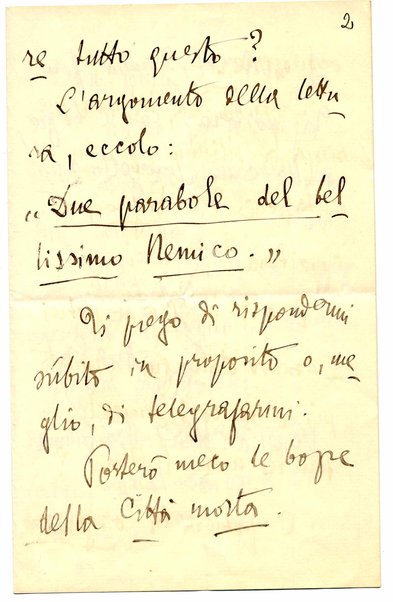 2
re tutto questo?
L'argomento della lettu
ra, eccolo:
„Due parabole del bel
lissimo Nemico.„
Ti prego di rispondermi
sùbito in proposito o, me
glio, di telegrafarmi.
Porterò meco le bozze
della Città morta.